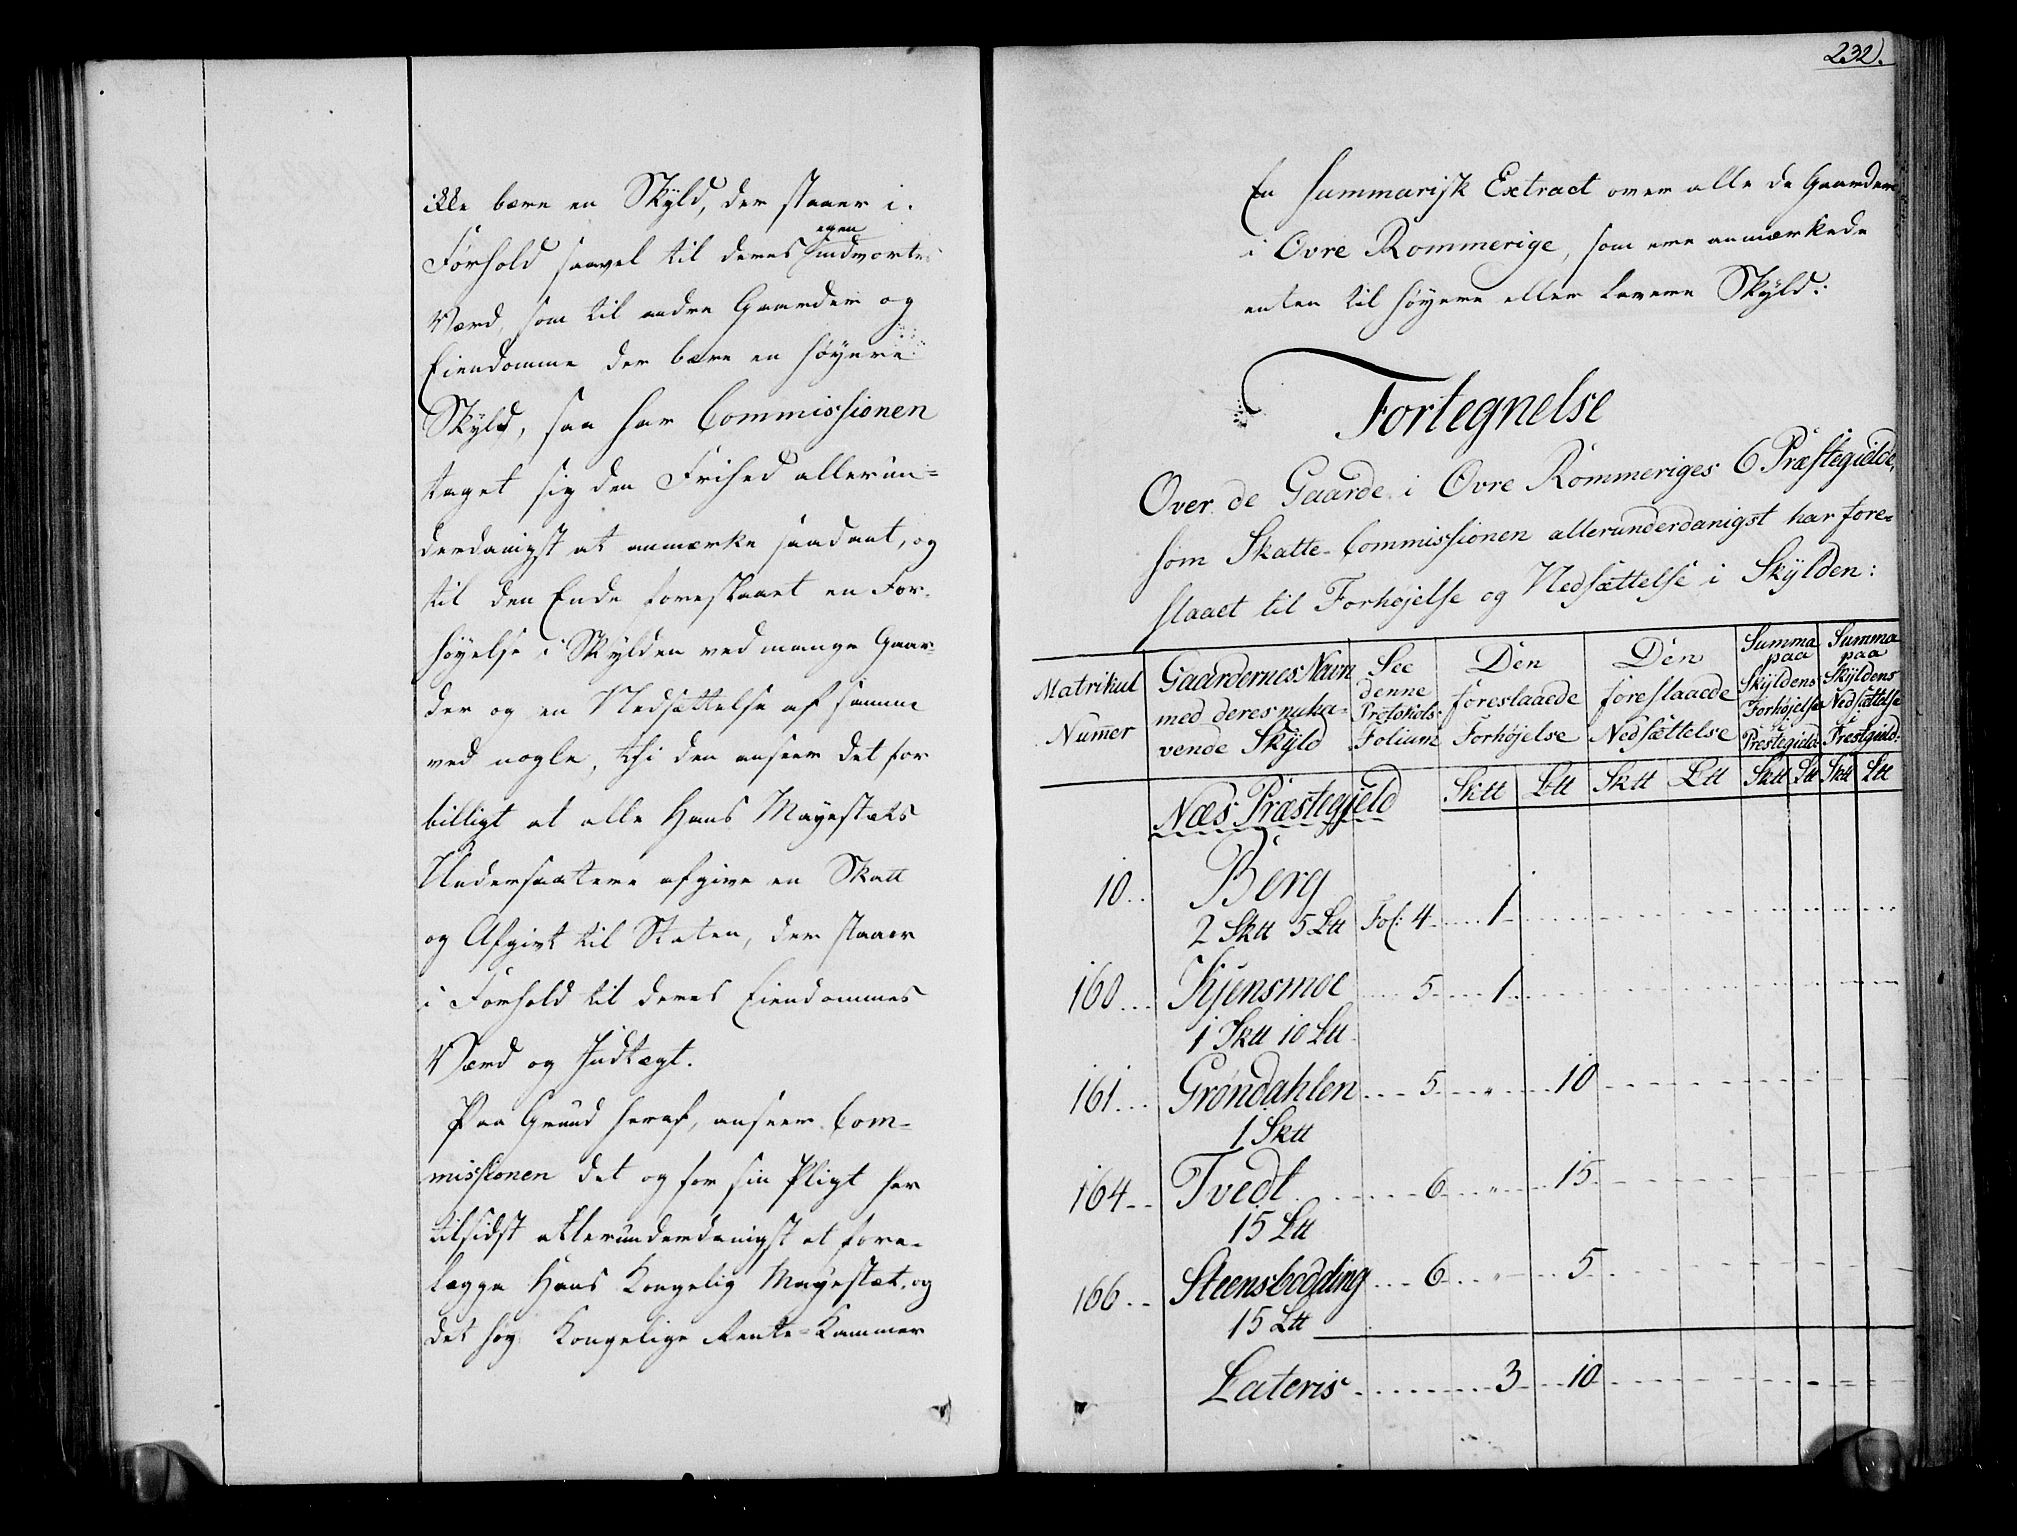 ikke bære en Skyld, der staaer i
egen
Forhold saavel til deres Indvortes
Værd, som til andre Gaarder og
Eiendomme der bære en høyere
Skyld, saa har Commissionen
taget sig den Frihed allerun=
derdanigst at anmærke saadant, og
til den Ende foreslaaet en For-
høyelse i Skylden ved mange Gaar-
der og en Nedsættelse af samme
ved nogle, thi den anseer det for
billigt at alle Hans Mayestæts
Undersaatere afgive en Skatt
og Afgivt til Staten, der staaer
i Forhold til deres Eiendommes
Værd og Indtægt.
Paa Grund heraf, anseer Com-
missionen det og for sin Pligt her
tilsidst allerunderdanigst at fore-
lægge Hans Kongelig Mayestæt, og
det høy Kongelige Rente=Kammer
232.
En Summarisk Extract over alle de Gaarder
i Ovre Rommerige, som ere anmærkede
enten til høyere eller lavere Skyld:
Fortegnelse
Over de Gaarde i Ovre Rommeriges 6 Præstegielde,
som Skatte-Commissionen allerunderdanigst har fore=
slaaet til Forhøjelse og Nedsættelse i Skylden:
Matrikul Nummer
Gaardernes Navn med deres nuha-vende Skyld
See denne Protokols Folium
Den foreslaaede Forhøjelse
Den foreslaaede Nedsættelse
Summa paa Skyldens Forhøjelse i Præstegield
Summa paa Skyldens Nedsættelse Præstgield:
Sktt Ltt Sktt Ltt Sktt Ltt Sktt Ltt
Næs Præstegjeld
10.. Berg
2 Sktt 5 Ltt Fol: 4 1
160... Kjensmoe 5 1
1 Sktt 10 Ltt
161... Grøndahlen 5 " 10
1 Sktt
164.. Tvedt 6 " 15
15 Ltt
166.. Steensbodding 6 " 5
15 Ltt
Lateris 3 10